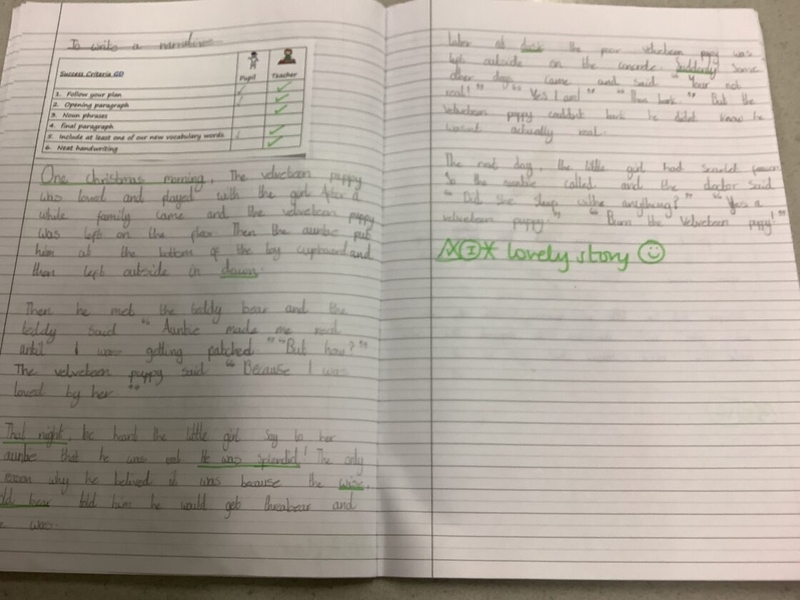 To write a narrative.
Success Criteria GD
Pupil Teacher
1. Follow your plan
2. Opening paragraph
3. Noun phrases
4. Final paragraph
5. Include at least one of our new vocabulary words
6. Neat handwriting
One christmas morning, The velveteen puppy
was loved and played with the girl. After a
while family came and the velveteen puppy
was left on the floor. Then the auntie put
him at the bottom of the toy cupboard and
then left outside in dawn.
Then he met the teddy bear and the
teddy said " Auntie made me real
until I was getting patched." "But how?"
The velveteen puppy said " Because I was
loved by her "
That night, he heard the little girl say to her
auntie that he was real He was splendid! The only
reason why he belived it was because the wise,
bear told him he would get threabear and
he was.
Later at dusk the poor velveteen puppy was
left outside on the concrete. Suddenly some
other dogs came and said "Your not
real!" "Yes I am!" "Then bark." But the
velveteen puppy couldn't bark he didnt know he
wasnt actually real.
The next day, the little girl had scarlet fever
So the auntie called and the doctor said
" Did she sleep withe anything?" "Yes a
velveteen puppy." "Burn the Velveteen puppy!"
lovely story